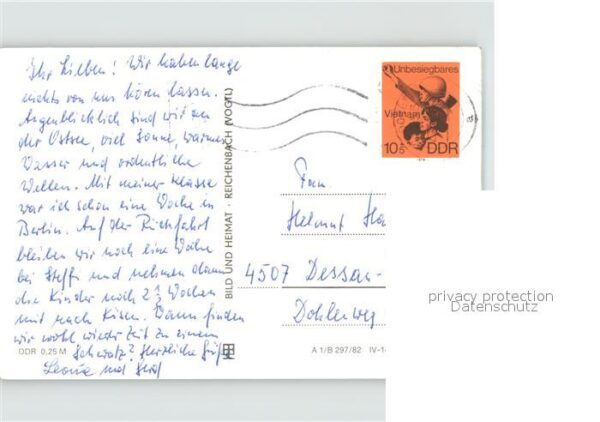 Ihr Lieben! Wir haben lange
nichts von uns hören lassen.
Augenblicklich sind wir an
der Ostsee, viel Sonne, warmes
Wasser und ordentliche
Wellen. Mit meiner Klasse
war ich schon eine Woche in
Berlin. Auf der Rückfahrt
bleiben wir noch eine Woche
bei Steffi und nehmen dann
die Kinder noch 2 1/2 Wochen
mit nach Dann finden
wir wohl wieder Zeit zu einem
Schwatz? Herzliche Grüße
und
DDR 0,25 M
BILD UND HEIMAT · REICHENBACH (VOGTL)
A 1/B 297/82 IV-14
Unbesiegbares
Vietnam
10+5
DDR
Fam.
Helmut
4507 Dessau-
Dohlenweg
privacy protection
Datenschutz